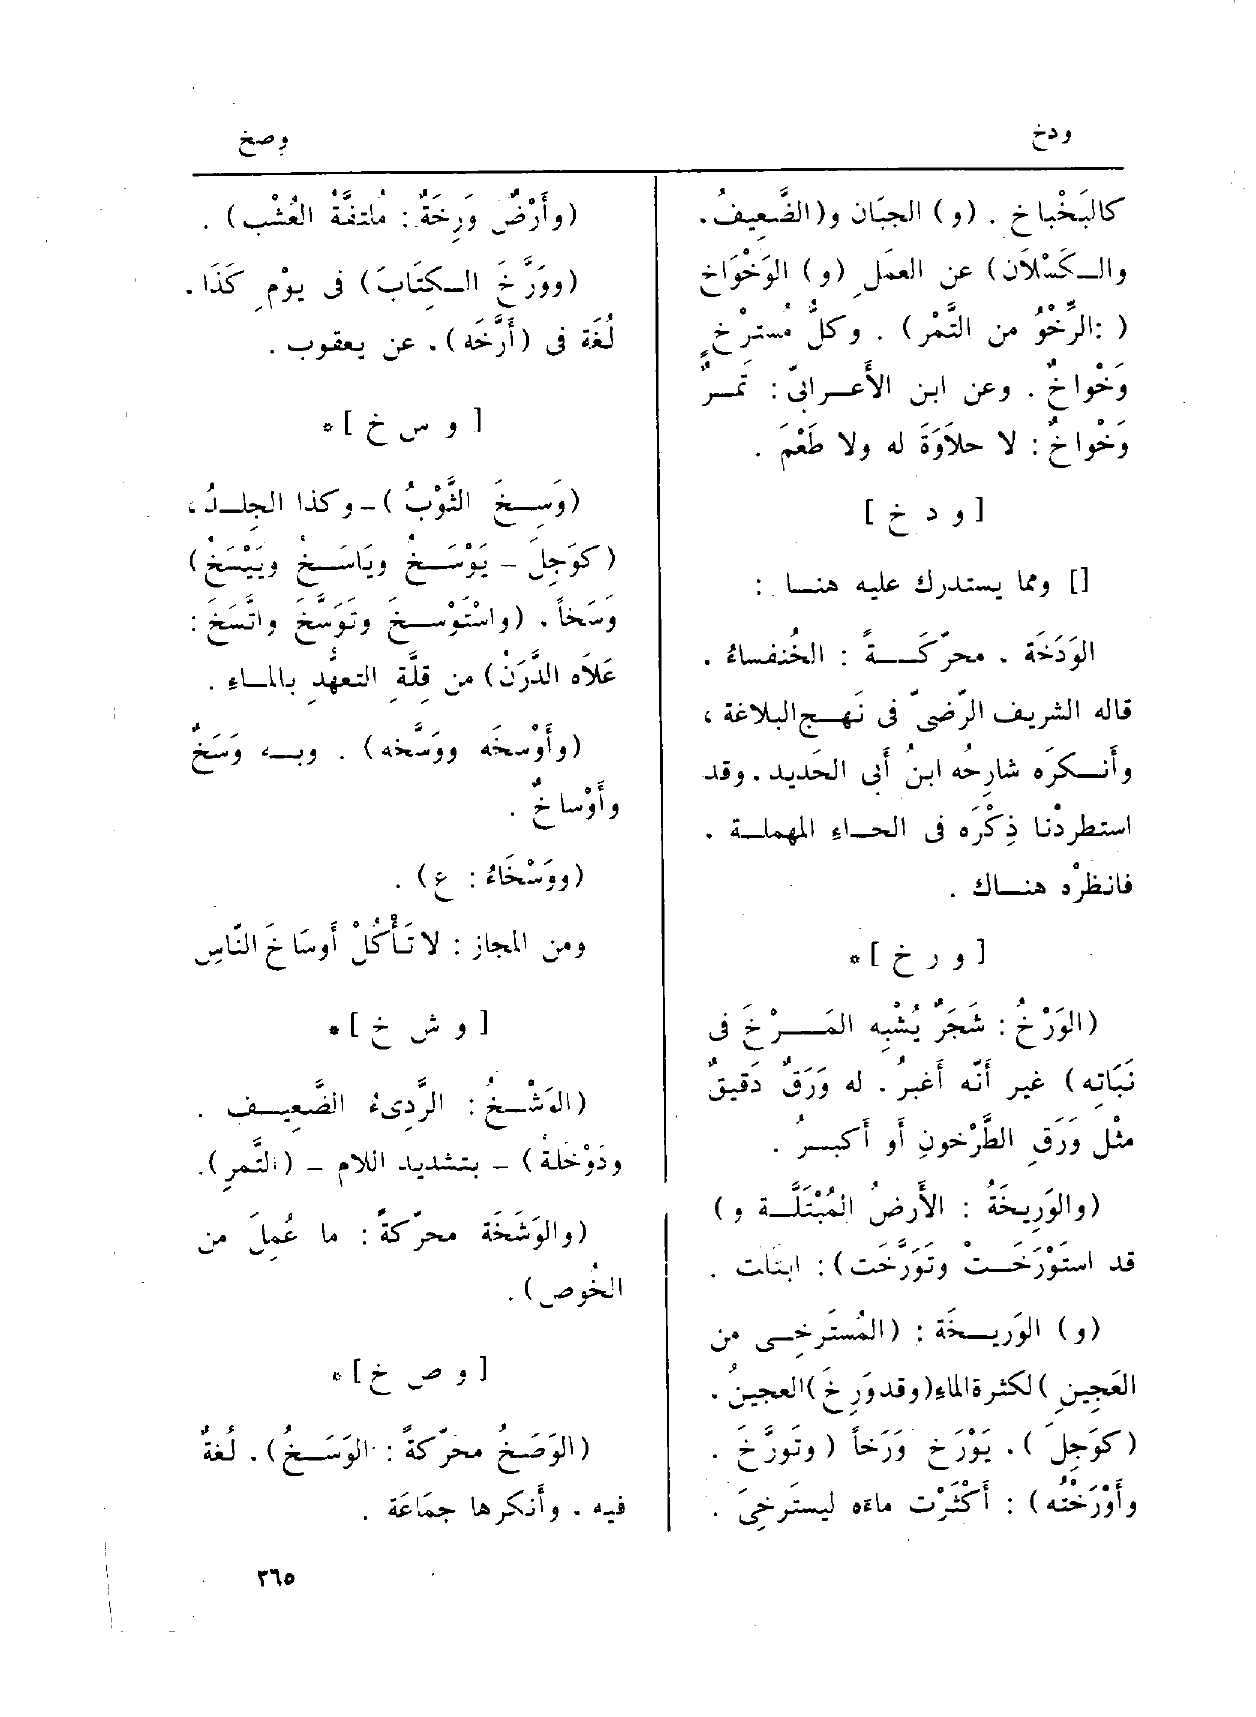 ودخ
وصخ
كالبَخْباخ . (و) الجبَان و(الضَّعِيفُ.
والـكَسْلاَن) عن العمَلِ (و) الوَخْوَاخ
( :الرِّخْوُ من التَّمْر) . وكلُّ مُسترْخٍ
وَخْواخٌ . وعن ابن الأَعـرابىّ : تَمـرٌ
وَخْواخٌ : لا حلاَوَةَ له ولا طَعْمَ .
[ و د خ ]
[] ومما يستدرك عليه هنـا :
الوَدَخَة . محرّكَــةً : الخُنفساءُ .
قاله الشريف الرّضىّ فى نَهـج البلاغة ،
وأَنـكرَه شارِحُه ابنُ أَبى الحَديد . وقد
استطردْنا ذِكْرَه فى الحـاء المهملـة .
فانظرْه هنـاك .
[ و ر خ ] *
(الوَرْخُ : شَجَرٌ يُشْبِه المَــرْخَ فى
نَبَاتِه) غير أَنّه أَغبرُ . له وَرَقٌ دَقيقٌ
مثْل وَرَقِ الطَّرْخونِ أَو أَكبـرُ .
(والوَرِيخَةُ : الأَرضُ المُبْتَلَّـة و)
قد استَوْرَخَـتْ وتَوَرَّخَت) : ابتلت .
(و) الوَريـخَة : (المُستَرخِـى من
العَجِينِ )لكثرة الماءِ(وقد وَرِخَ )العجينُ .
(كوَجِلَ ). يَوْرَخ وَرَخاً ( وتَورَّخَ .
وأَوْرَخْتُه) : أَكْثَرْت ماءَه ليستَرخِىَ .
(وأَرْضٌ وَرِخَةٌ : مُلتفَّةُ العُشْب) .
(ووَرَّخَ الـكِتَابَ) فى يوْمِ كَذَا.
لُغَة فى (أَرَّخَه) . عن يعقوب .
[ و س خ ] *
(وَسِـخَ الثَّوْبُ )-وكذا الجِلـدُ ،
(كوَجِلَ - يَوْسَـخُ ويَاسَـخُ ويَيْسَخُ)
وَسَخاً . (واسْتَوْسـخَ وتَوَسَّخَ واتَّسَخَ :
عَلاَه الدَّرَنُ) من قِلَّةِ التعهُّدِ بالمـاءِ .
(وأَوْسخَه ووَسَّخه) . وبـه وَسَخٌ
وأَوْساخٌ .
(ووَسْخَاءُ : ع) .
ومن المجاز : لا تَـأْكُلْ أَوسَاخَ النّاسِ
[ و ش خ ] *
(الوَشْـخُ : الرَّدِىءُ الضَّعِيـف .
ودَوْخَلةُ ) - بتشديد اللام - (التَّمرِ).
(والوَشَخَة محرّكةً : ما عُمِلَ من
الخُوص) .
[ و ص خ ] *
(الوَصَخُ محرّكةً : الوَسَـخُ) . لُغةٌ
فيه . وأَنكرها جمَاعَة .
٣٦٥